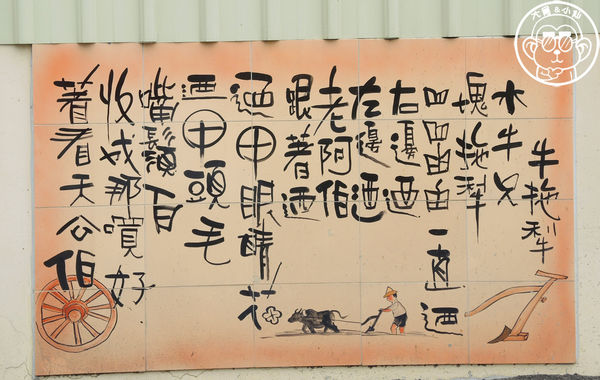 牛拖犁
水牛兄
塊拖犁
凹凹凸凸一直迺
右邊迺
左邊迺
老阿伯
跟著迺
迺甲眼睛花
迺甲頭毛
嘴鬚白
收成那嘪好
著看天公伯